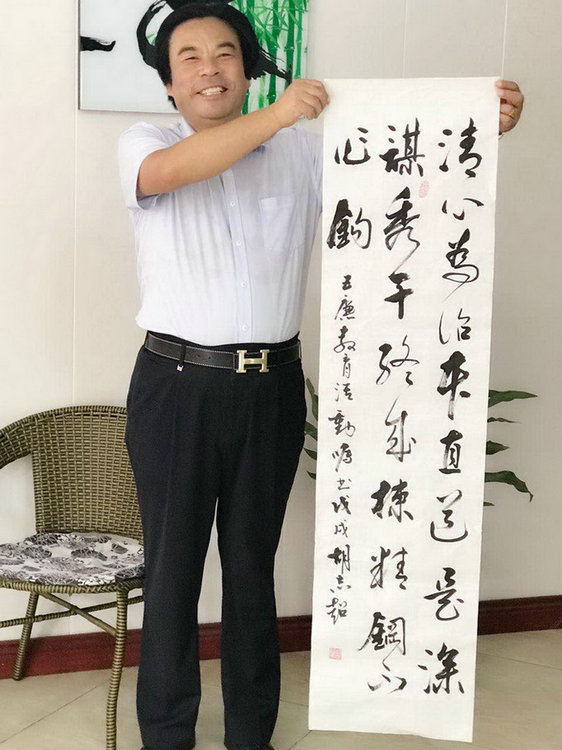 清心為治本直道是深
謀秀干終成棟精鋼不
作鈎
五廉教育活動嘱书戊戌胡志超